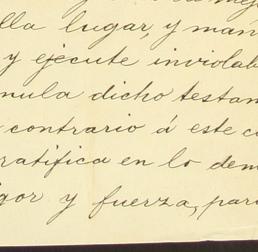 lla lugar, y man
y ejecute inviolab
nula dicho testam
contrario á este co
ratifica en lo dem
igor y fuerza, para